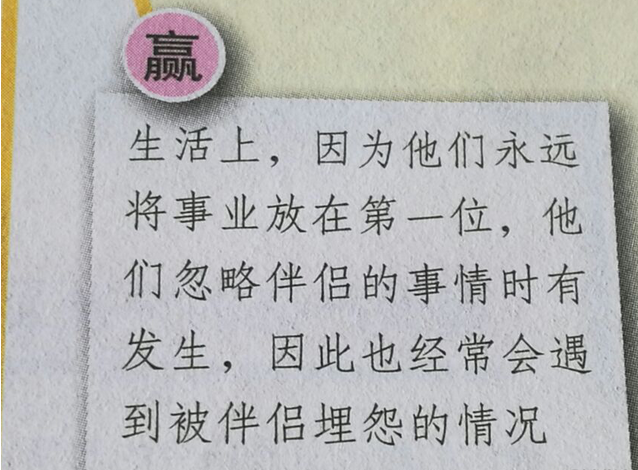 赢
生活上，因为他们永远
将事业放在第一位，他
们忽略伴侣的事情时有
发生，因此也经常会遇
到被伴侣埋怨的情况